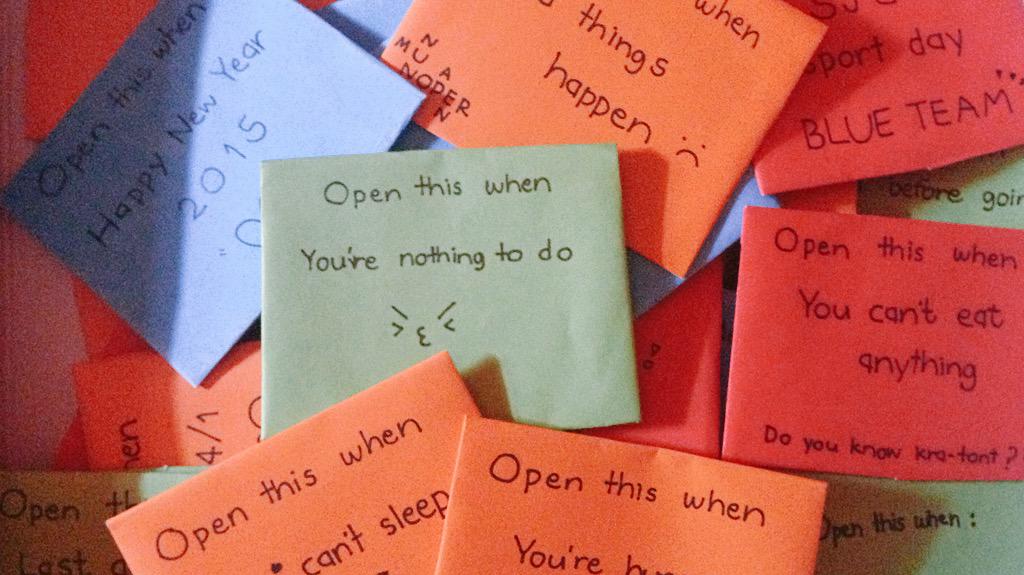 Open this when
Happy New Year
2015
when
things
happen :(
port day
BLUE TEAM
before
Open this when
You're nothing to do
Open this when
You can't eat
anything
Do you know kra-tont?
4/1
Open
Last
Open this when
can't sleep
Open this when
You're
Open this when: